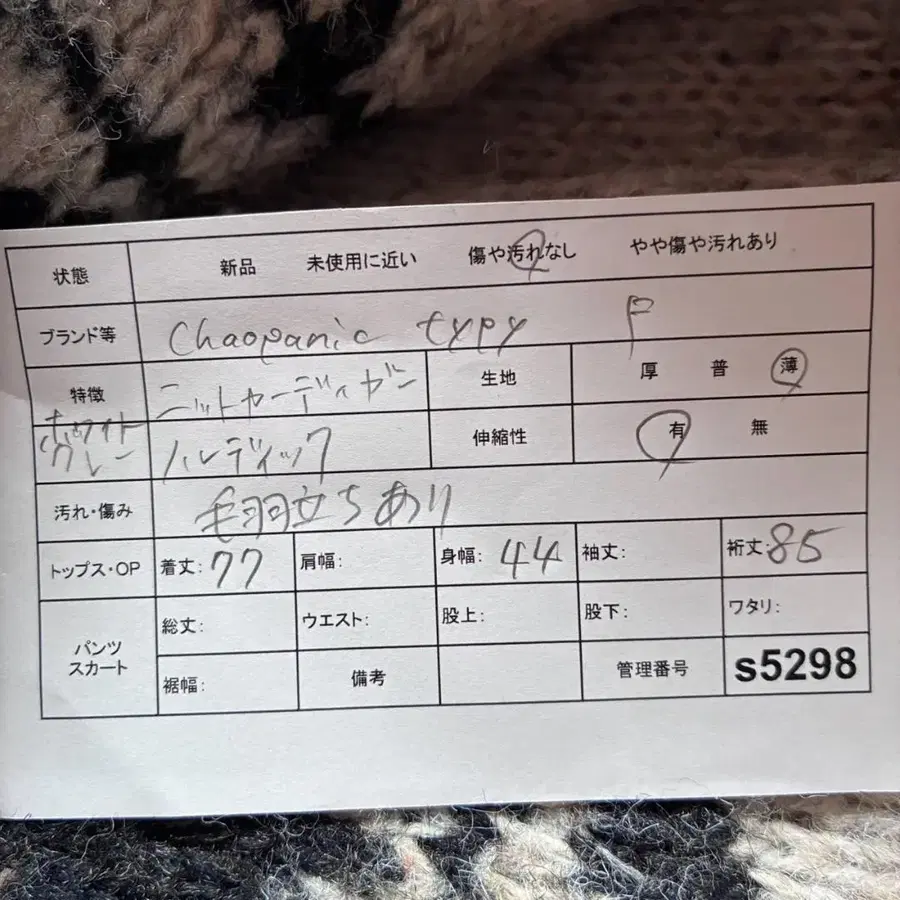 状態 新品 未使用に近い 傷や汚れなし やや傷や汚れあり
ブランド等 Chaopanic typy F
特徴 ニットカーディガン 生地 厚 普 薄
ホワイト グレー ハルディック 伸縮性 有 無
汚れ・傷み 毛羽立ちあり
トップス・OP 着丈: 77 肩幅: 身幅: 44 袖丈: 裄丈: 85
パンツ スカート 総丈: ウエスト: 股上: 股下: ワタリ:
裾幅: 備考 管理番号 s5298